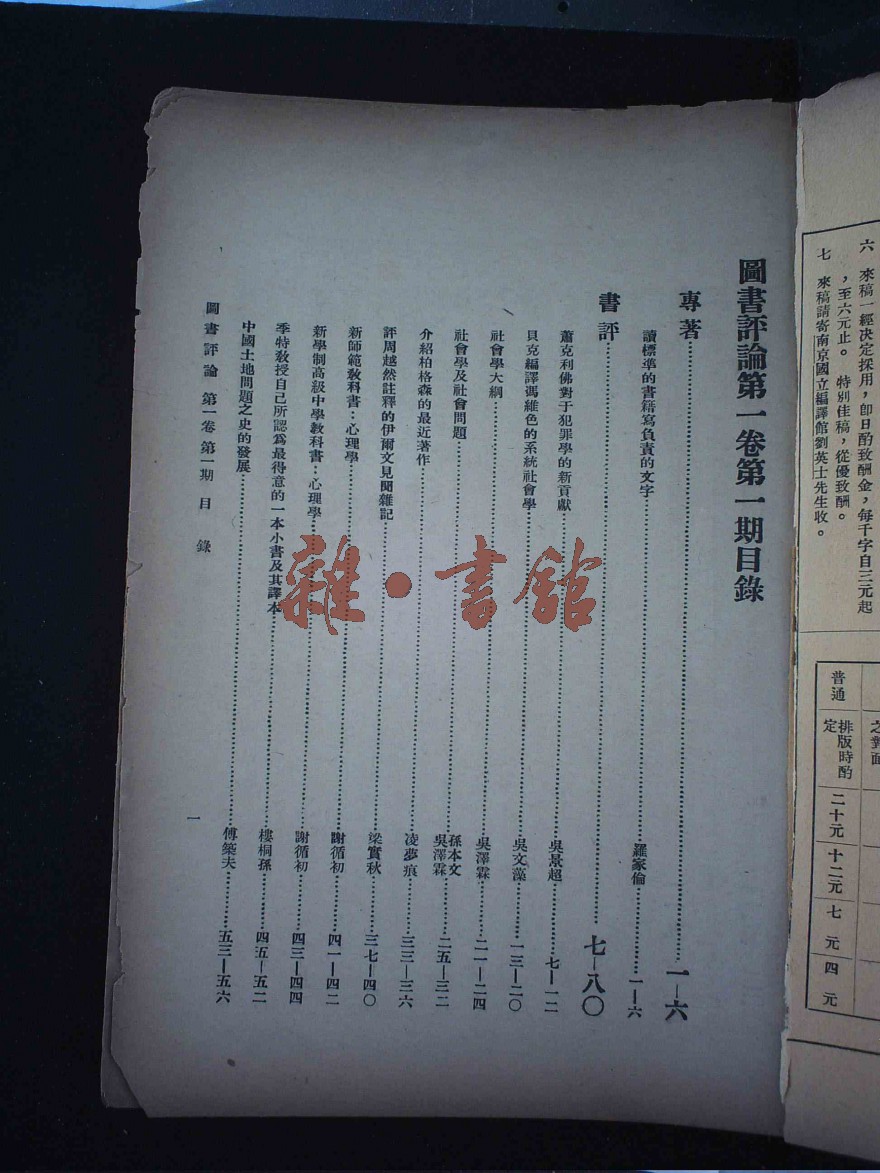 六　來稿一經決定採用，卽日酌致酬金，每千字自三元起
，至六元止。　特別佳稿，從優致酬。
七　來稿請寄南京國立編譯館劉英士先生收。
之對面
普通　排版時酌定　二十元　十二元　七　元　四　元
圖書評論第一卷第一期目錄
專著……一—六
讀標準的書籍寫負責的文字……羅家倫……一—六
書評……七—八〇
蕭克利佛對于犯罪學的新貢獻……吳景超……七—一二
貝克編譯馮維色的系統社會學……吳文藻……一三—二〇
社會學大綱……吳澤霖……二一—二四
社會學及社會問題……孫本文 吳澤霖……二五—三二
介紹柏格森的最近著作……凌夢痕……三三—三六
評周越然註釋的伊爾文見聞雜記……梁實秋……三七—四〇
新師範敎科書：心理學……謝循初……四一—四二
新學制高級中學敎科書：心理學……謝循初……四三—四四
季特敎授自己所認爲最得意的一本小書及其譯本……樓桐孫……四五—五二
中國土地問題之史的發展……傅築夫……五三—五六
圖書評論　第一卷第一期　目　錄
一
雜·書館